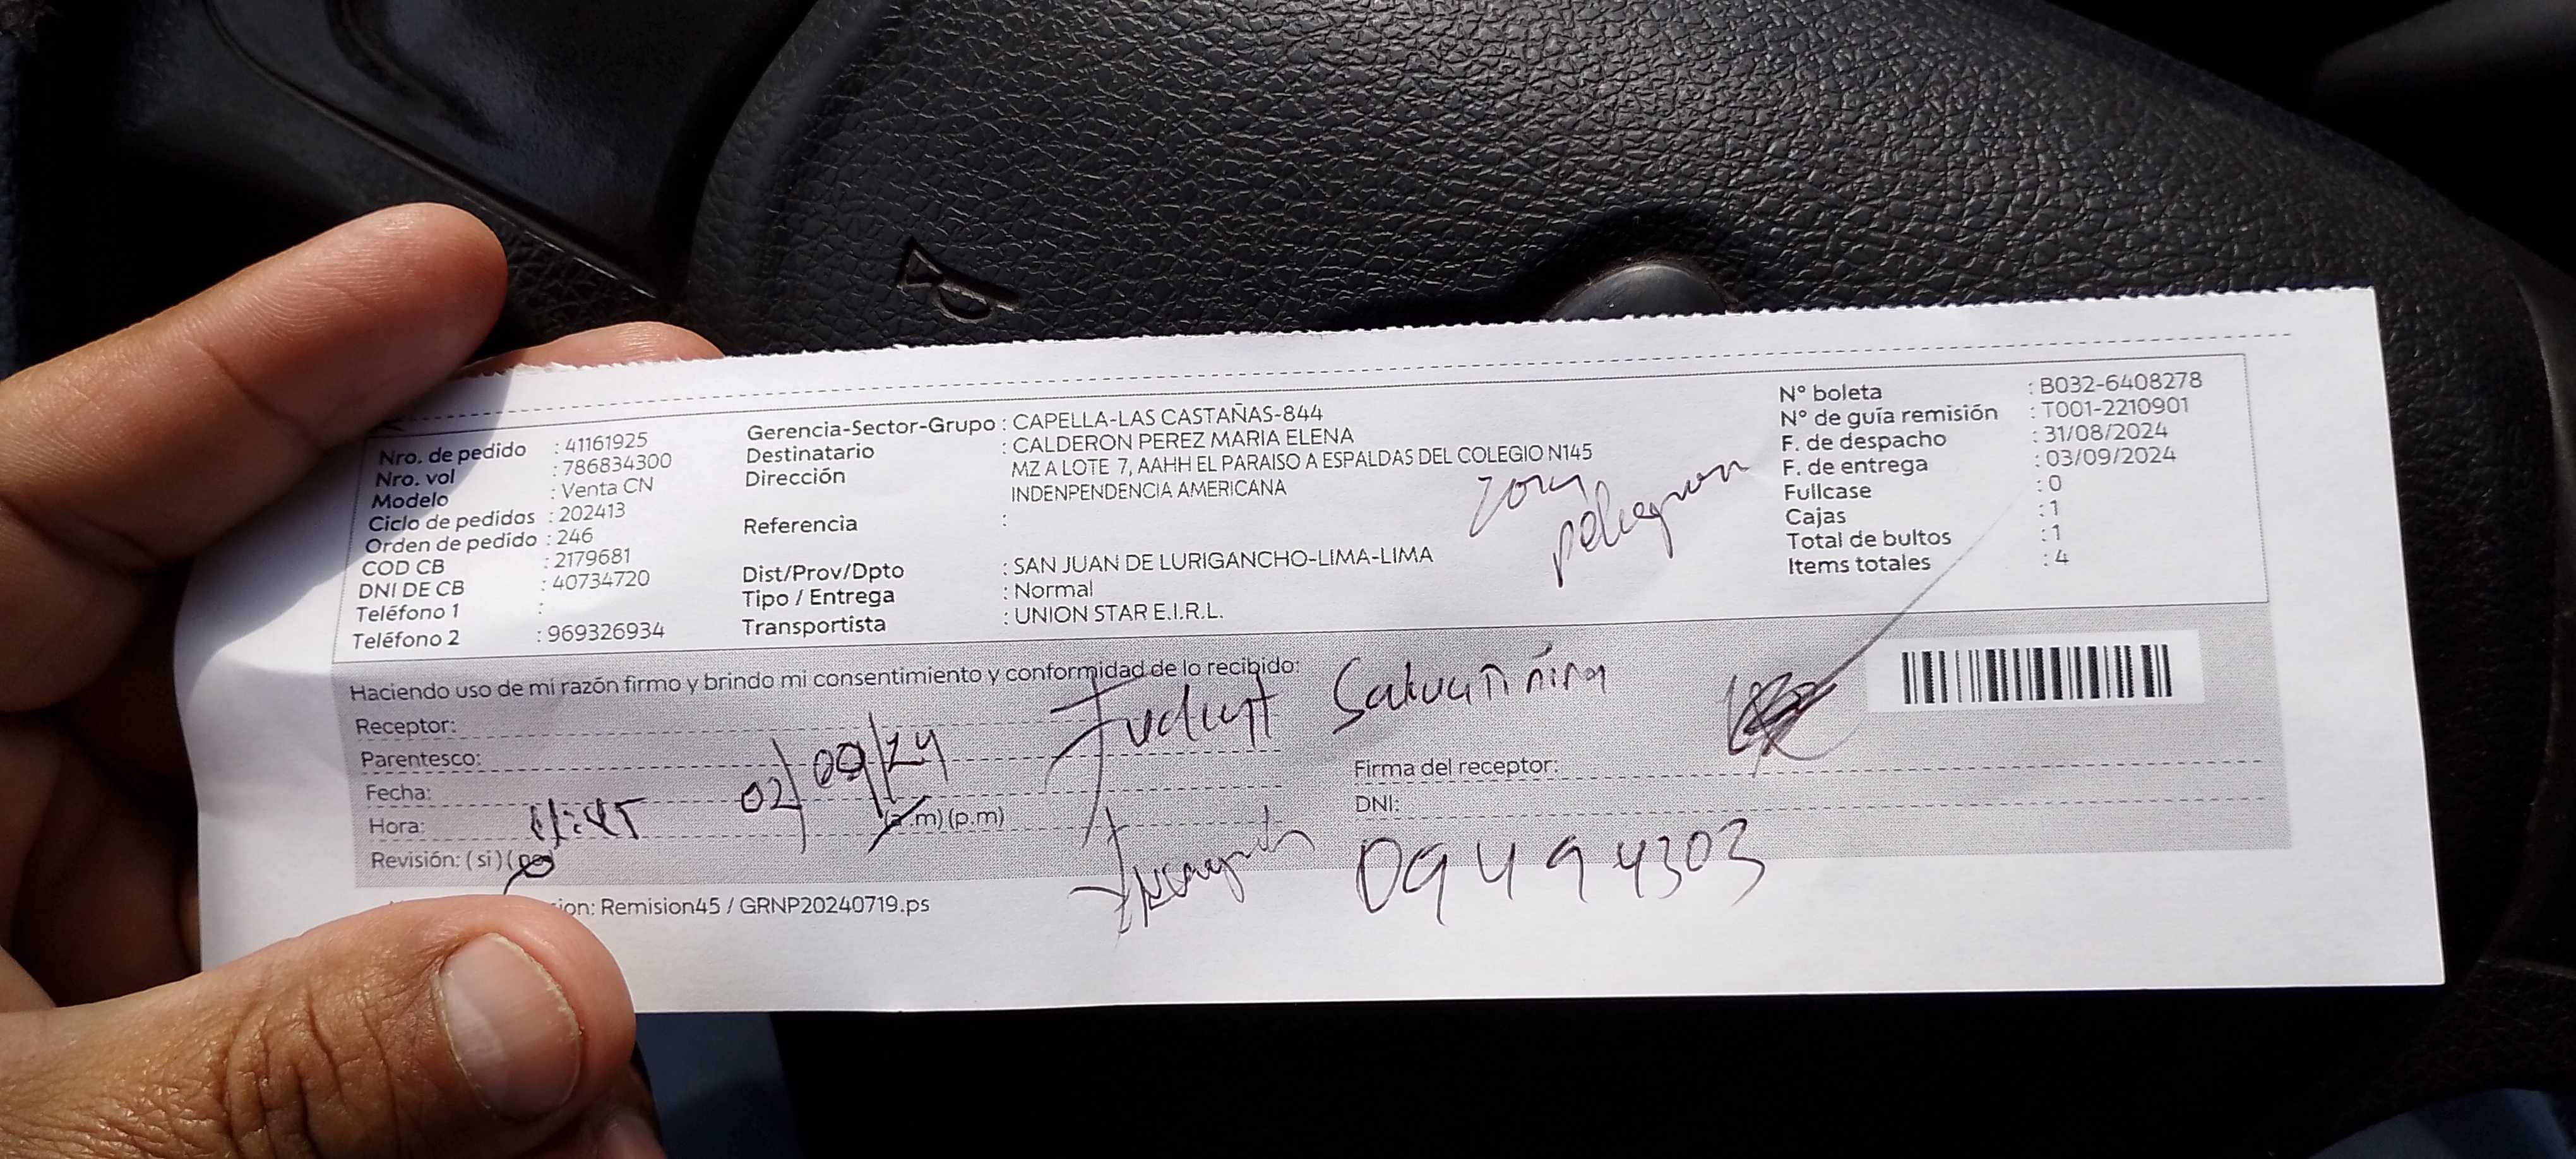 Nro. de pedido : 41161925
Nro. vol : 786834300
Modelo : Venta CN
Ciclo de pedidos : 202413
Orden de pedido : 246
COD CB : 2179681
DNI DE CB : 40734720
Teléfono 1 :
Teléfono 2 : 969326934
Gerencia-Sector-Grupo : CAPELLA-LAS CASTAÑAS-844
Destinatario : CALDERON PEREZ MARIA ELENA
Dirección MZ A LOTE 7, AAHH EL PARAISO A ESPALDAS DEL COLEGIO N145
INDENPENDENCIA AMERICANA
Referencia :
Dist/Prov/Dpto : SAN JUAN DE LURIGANCHO-LIMA-LIMA
Tipo / Entrega : Normal
Transportista : UNION STAR E.I.R.L.
Zona
N° boleta : B032-6408278
N° de guía remisión : T001-2210901
F. de despacho : 31/08/2024
F. de entrega : 03/09/2024
Fullcase : 0
Cajas : 1
Total de bultos : 1
Items totales : 4
Haciendo uso de mi razón firmo y brindo mi consentimiento y conformidad de lo recibido:
Receptor:
Parentesco:
Fecha: 02/09/24
Hora: 11:45 (a.m) (p.m)
Revisión: (si) (no)
Firma del receptor:
DNI: 09494303
ion: Remision45 / GRNP20240719.ps